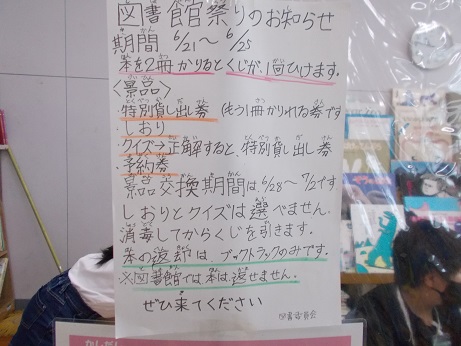 図書館祭りのお知らせ
期間 6/21～6/25
本を2冊かりるとくじが、1回ひけます。
<景品>
・特別貸し出し券(もう1冊かりれる券です
・しおり
・クイズ→正解すると、特別貸し出し券
・予約券
景品交換期間は6/28～7/2です
しおりとクイズは選べません。
消毒してからくじを引きます。
本の返却は、ブックトラックのみです。
※図書館では本は返せません。
ぜひ来てください
図書委員会